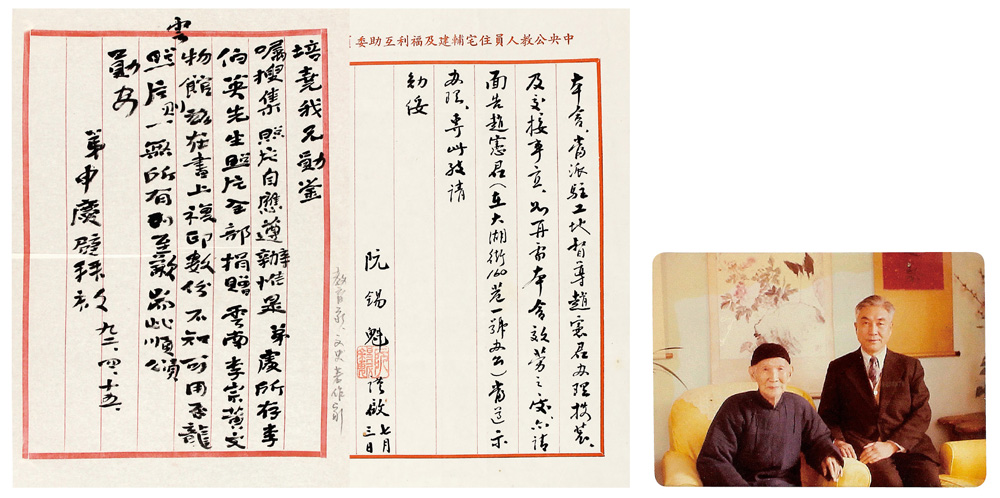 中央公教人員住宅輔建及福利互助委
本會當派駐工地督導趙憲君辦理換裝、
及交接事宜、如再需本會效勞之處、亦請
面告趙憲君(在大湖街 巷一號辦公)當遵示
辦理、專此敬請
勛綏
阮錫魁 謹啟 七月三日
培堯我兄勳鉴
囑搜集照片自應遵辦惟是弟處所存李
伯英先生照片全部捐贈雲南李宗黃文
物館 在書上複印數份不知可用否龍
雲照片則一無所有 至歉耑此順頌
勳安
弟申慶璧拜啟 九二、四、十五、
教育家、文史著作家